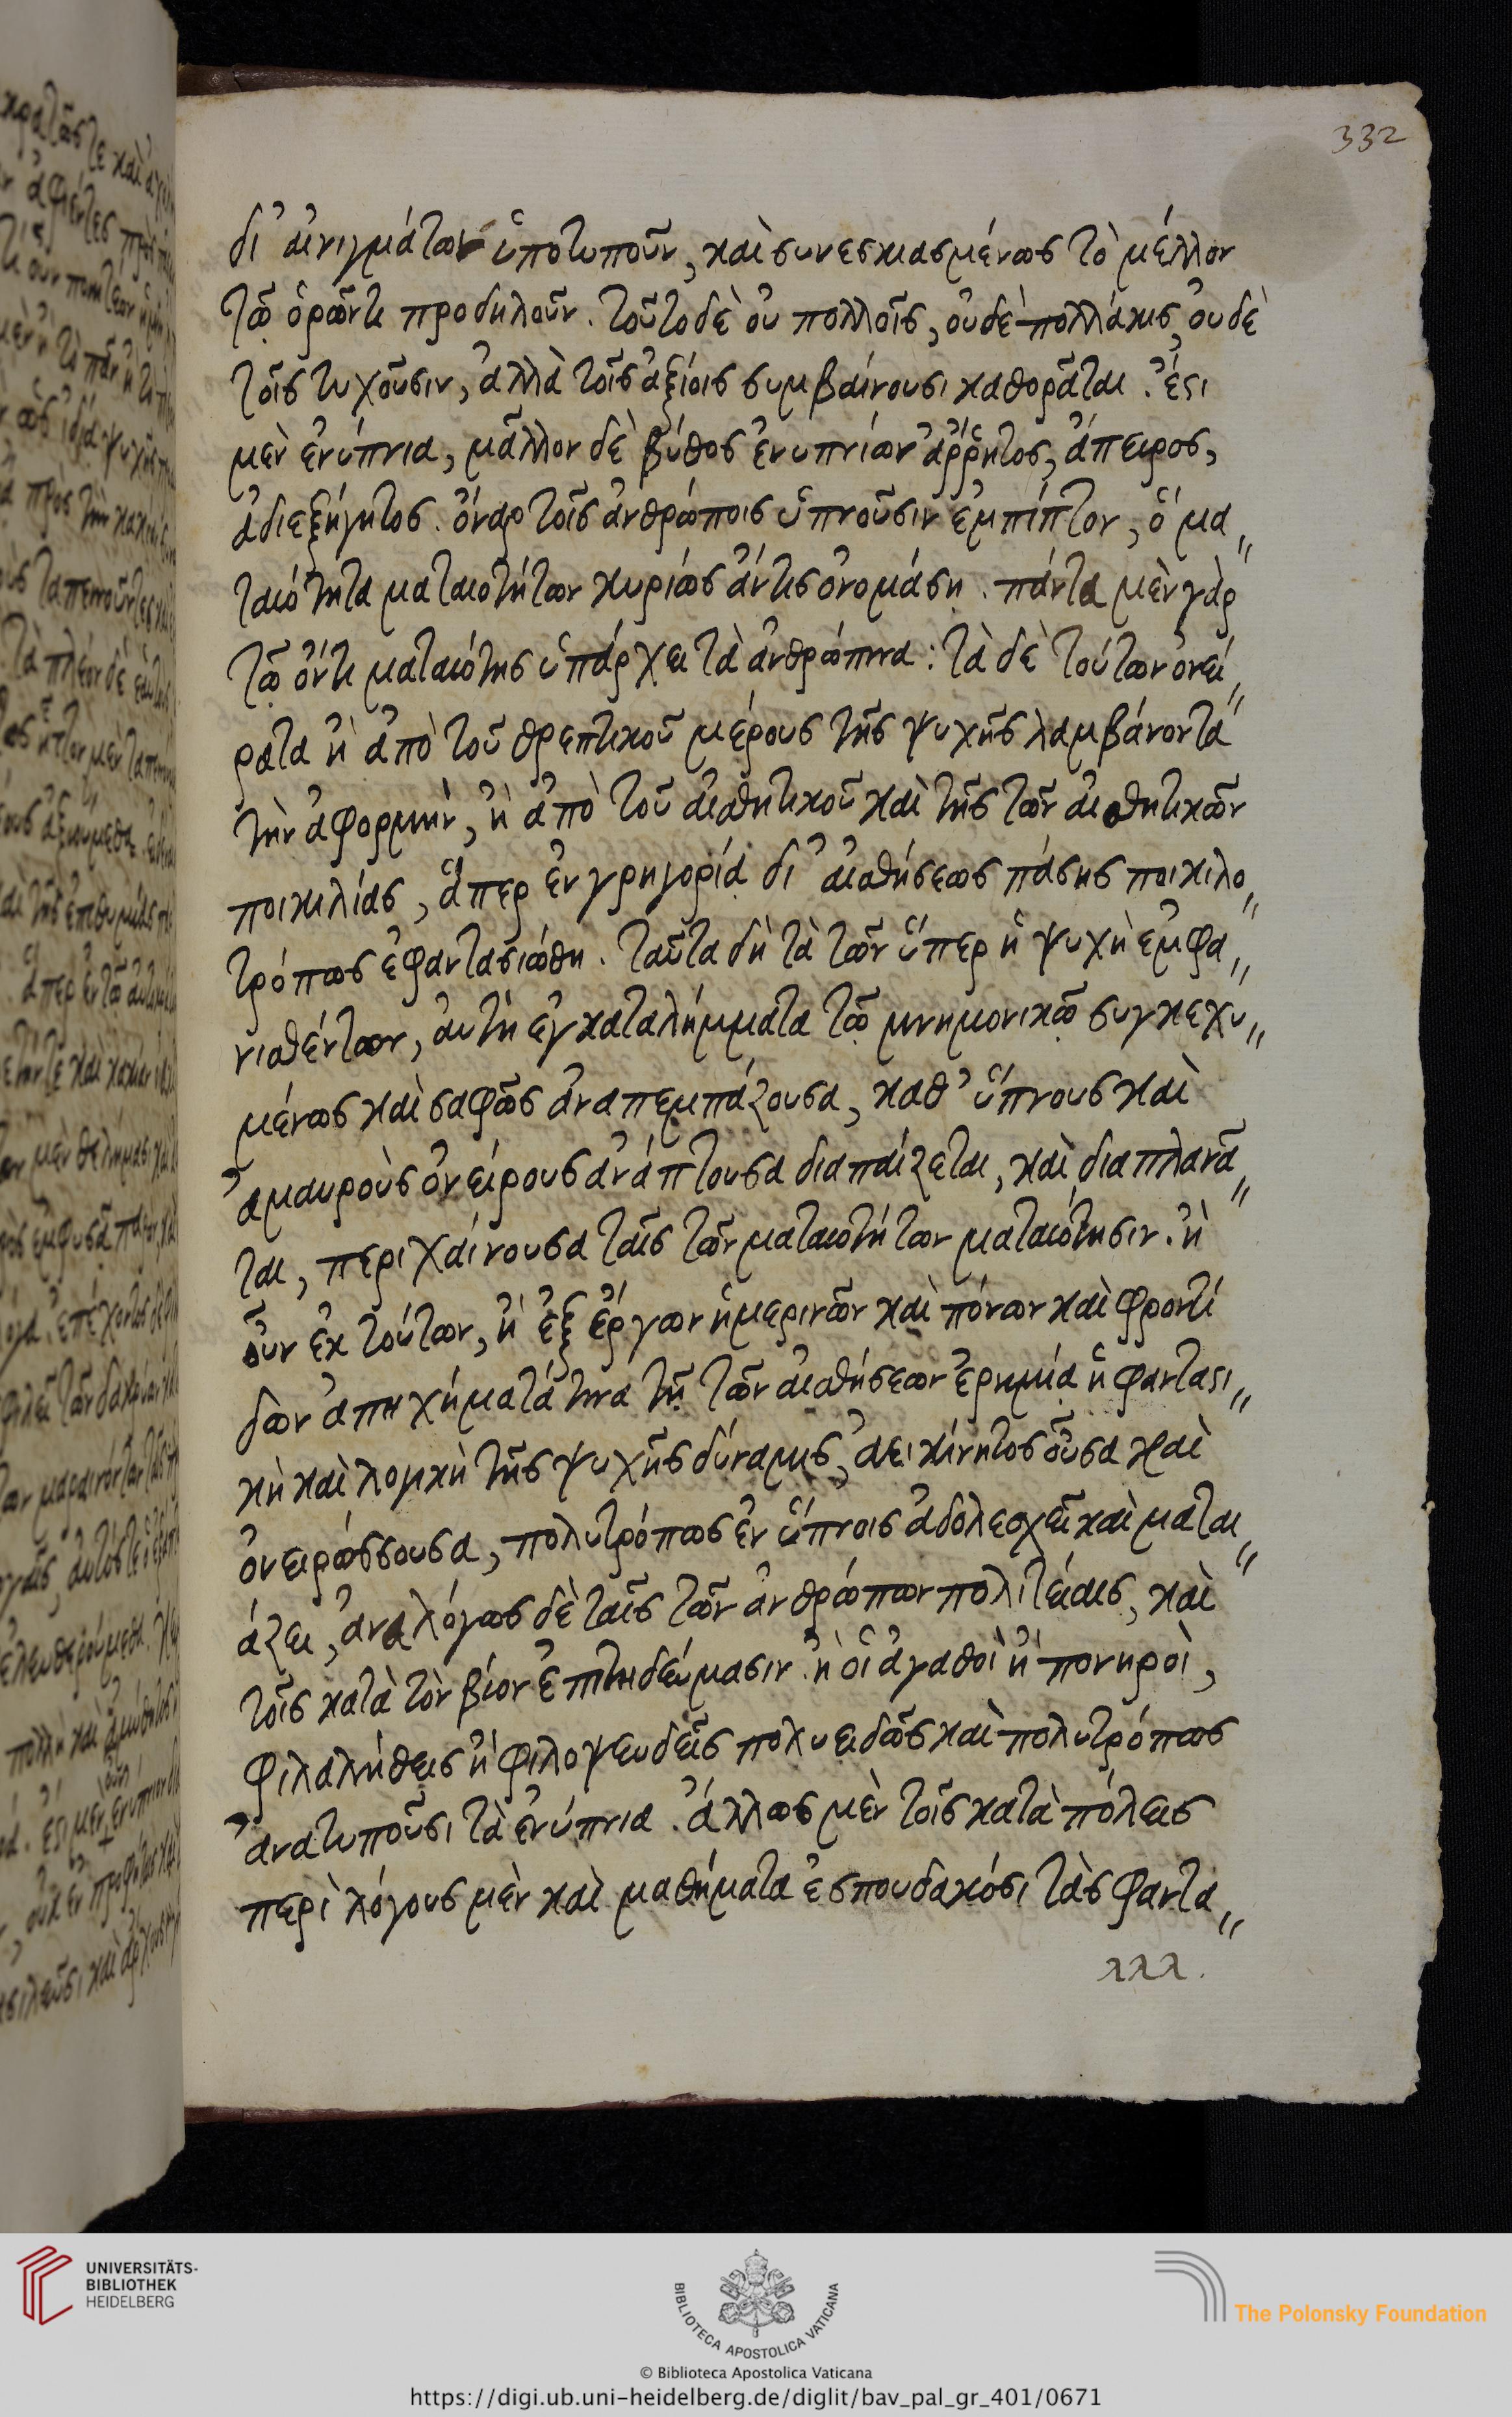 332
δι' αἰνιγμάτων ὑποτυποῦν, καὶ συνεσκιασμένως τὸ μέλλον
τῷ ὁρῶντι προδηλοῦν. τοῦτο δὲ οὐ πολλοῖς, οὐδὲ πολλάκις, οὐδὲ
τοῖς τυχοῦσιν, ἀλλὰ τοῖς ἀξίοις συμβαίνουσι καθορᾶται. ἔστι
μὲν ἐνύπνια, μᾶλλον δὲ βύθος ἐνυπνίων ἄῤῥητος, ἄπειρος,
ἀδιεξήγητος. ὄναρ τοῖς ἀνθρώποις ὑπνοῦσιν ἐμπίπτον, ὃ μα„
ταιότητα ματαιοτήτων κυρίως ἄν τις ὀνομάση. πάντα μὲν γὰρ
τῷ ὄντι ματαιότης ὑπάρχει τὰ ἀνθρώπινα: τὰ δὲ τούτων ὀνεί„
ρατα ἢ ἀπὸ τοῦ θρεπτικοῦ μέρους τῆς ψυχῆς λαμβάνοντα
τὴν ἀφορμὴν, ἢ ἀπὸ τοῦ αἰσθητικοῦ καὶ τῆς τῶν αἰσθητικῶν
ποικιλίας, ἅπερ ἐν γρηγορίᾳ δι' αἰσθήσεως πάσης ποικιλο„
τρόπως ἐφαντασιώθη. ταῦτα δὴ τὰ τῶν ὕπερ ἡ ψυχὴ ἐμφα„
νισθέντων, αὐτὴ ἐγκαταλήμματα τῷ μνημονικῷ συγκεχυ„
μένως καὶ σαφῶς ἀναπεμπάζουσα, καθ' ὕπνους καὶ
ἀμαυροὺς ὀνείρους ἀνάπτουσα διαπαίζεται, καὶ διαπλανᾶ„
ται, περιχαίνουσα ταῖς τῶν ματαιοτήτων ματαιότησιν. ἢ
οὖν ἐκ τούτων, ἢ ἐξ ἔργων ἡμερινῶν καὶ πόνων καὶ φροντί
δων ἀπηχήματά τινα τῇ τῶν αἰσθήσεων ἐρημίᾳ ἡ φανταστι„
κὴ καὶ λογικὴ τῆς ψυχῆς δύναμις, ἀεικίνητος οὖσα καὶ
ὀνειρώσσουσα, πολυτρόπως ἐν ὕπνοις ἀδολεσχεῖ καὶ μαται„
άζει, ἀναλόγως δὲ ταῖς τῶν ἀνθρώπων πολιτείαις, καὶ
τοῖς κατὰ τὸν βίον ἐπιτηδεύμασιν. ἢ οἱ ἀγαθοὶ ἢ πονηροὶ,
φιλαλήθεις ἢ φιλοψευδεῖς πολυειδῶς καὶ πολυτρόπως
ἀνατυποῦσι τὰ ἐνύπνια. ἄλλως μὲν τοῖς κατὰ πόλεις
περὶ λόγους μὲν καὶ μαθήματα ἐσπουδακόσι τὰς φαντα„
λλλ.
UNIVERSITÄTS-
BIBLIOTHEK
HEIDELBERG
BIBLIOTECA APOSTOLICA VATICANA
The Polonsky Foundation
© Biblioteca Apostolica Vaticana
https://digi.ub.uni-heidelberg.de/diglit/bav_pal_gr_401/0671